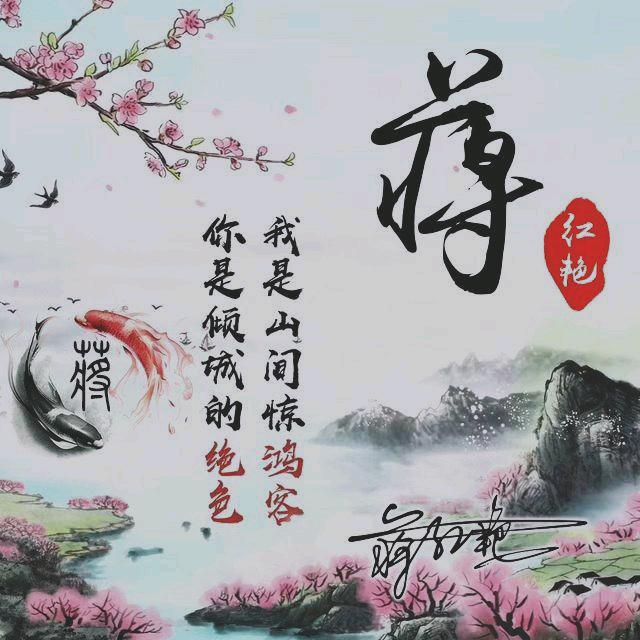 蒋
红艳
我是山间惊鸿客
你是倾城的绝色
蒋
蒋红艳